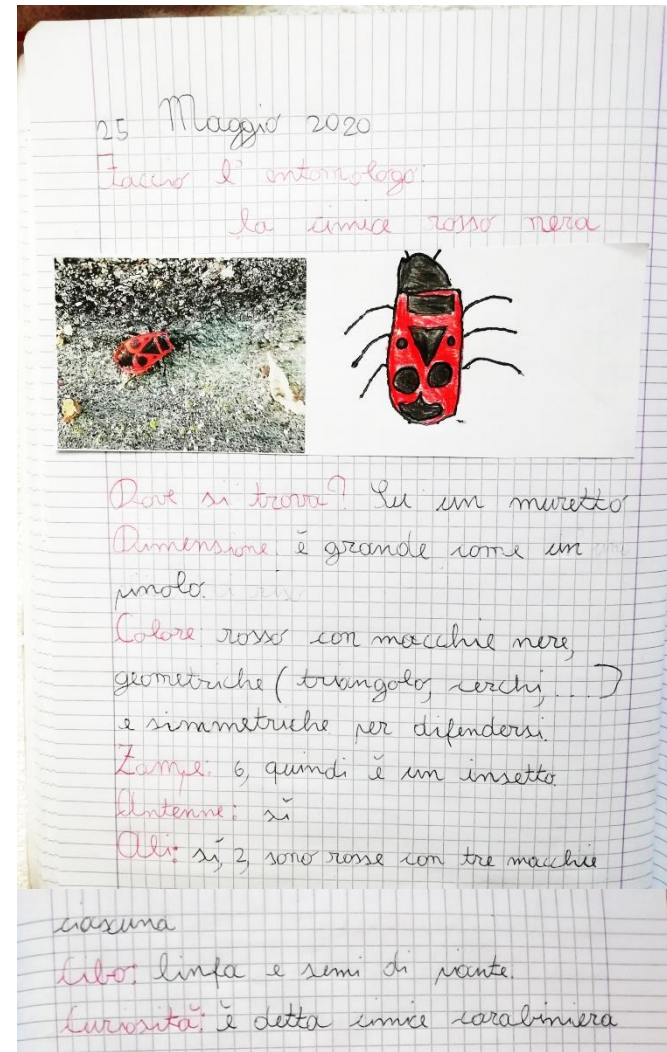 25 Maggio 2020
Faccio l'entomologo:
la cimice rosso nera
Dove si trova? Su un muretto
Dimensione: è grande come un
pinolo.
Colore: rosso con macchie nere,
geometriche (triangolo, cerchi, ...)
e simmetriche per difendersi.
Zampe: 6, quindi è un insetto.
Antenne: sì
Ali: sì, 2, sono rosse con tre macchie
ciascuna
Cibo: linfa e semi di piante.
Curiosità: è detta cimice carabiniera